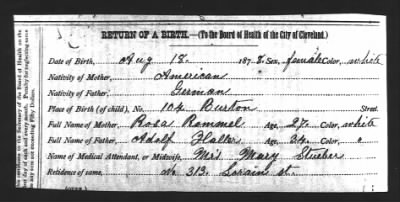 RETURN OF A BIRTH.—(To the Board of Health of the City of Cleveland.)
Date of Birth, Aug 18. 1878. Sex, female Color, white
Nativity of Mother, American
Nativity of Father, German
Place of Birth (of child), No. 104 Burton Street.
Full Name of Mother, Rosa Rommel Age, 27. Color, white
Full Name of Father, Adolf Haller Age, 34. Color, "
Name of Medical Attendant, or Midwife, Mrs Mary Stueber
Residence of same, No. 313. Lorain st.